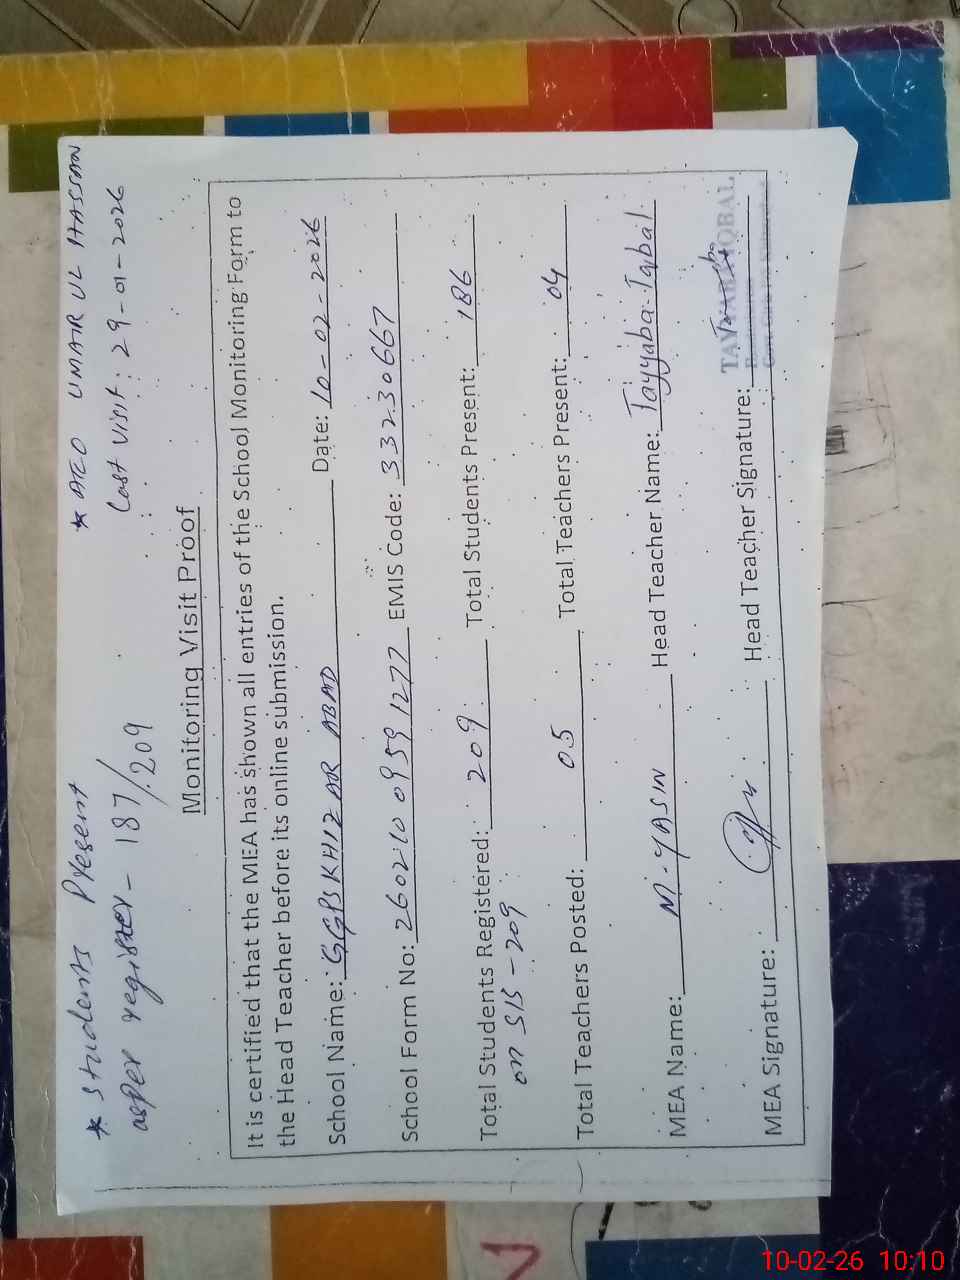 * Students Present
asper register - 187/209
* AEO UMAIR UL HASSAN
Last visit: 29-01-2026
Monitoring Visit Proof
It is certified that the MEA has shown all entries of the School Monitoring Form to
the Head Teacher before its online submission.
School Name: GGPS KHIZAR ABAD Date: 10-02-2026
School Form No: 260210 0959 1277 EMIS Code: 33230667
Total Students Registered: 209 Total Students Present: 186
on SIS - 209
Total Teachers Posted: 05 Total Teachers Present: 04
MEA Name: M. YASIN Head Teacher Name: Tayyaba Iqbal
MEA Signature: Head Teacher Signature:
TAYYABA IQBAL
10-02-26 10:10